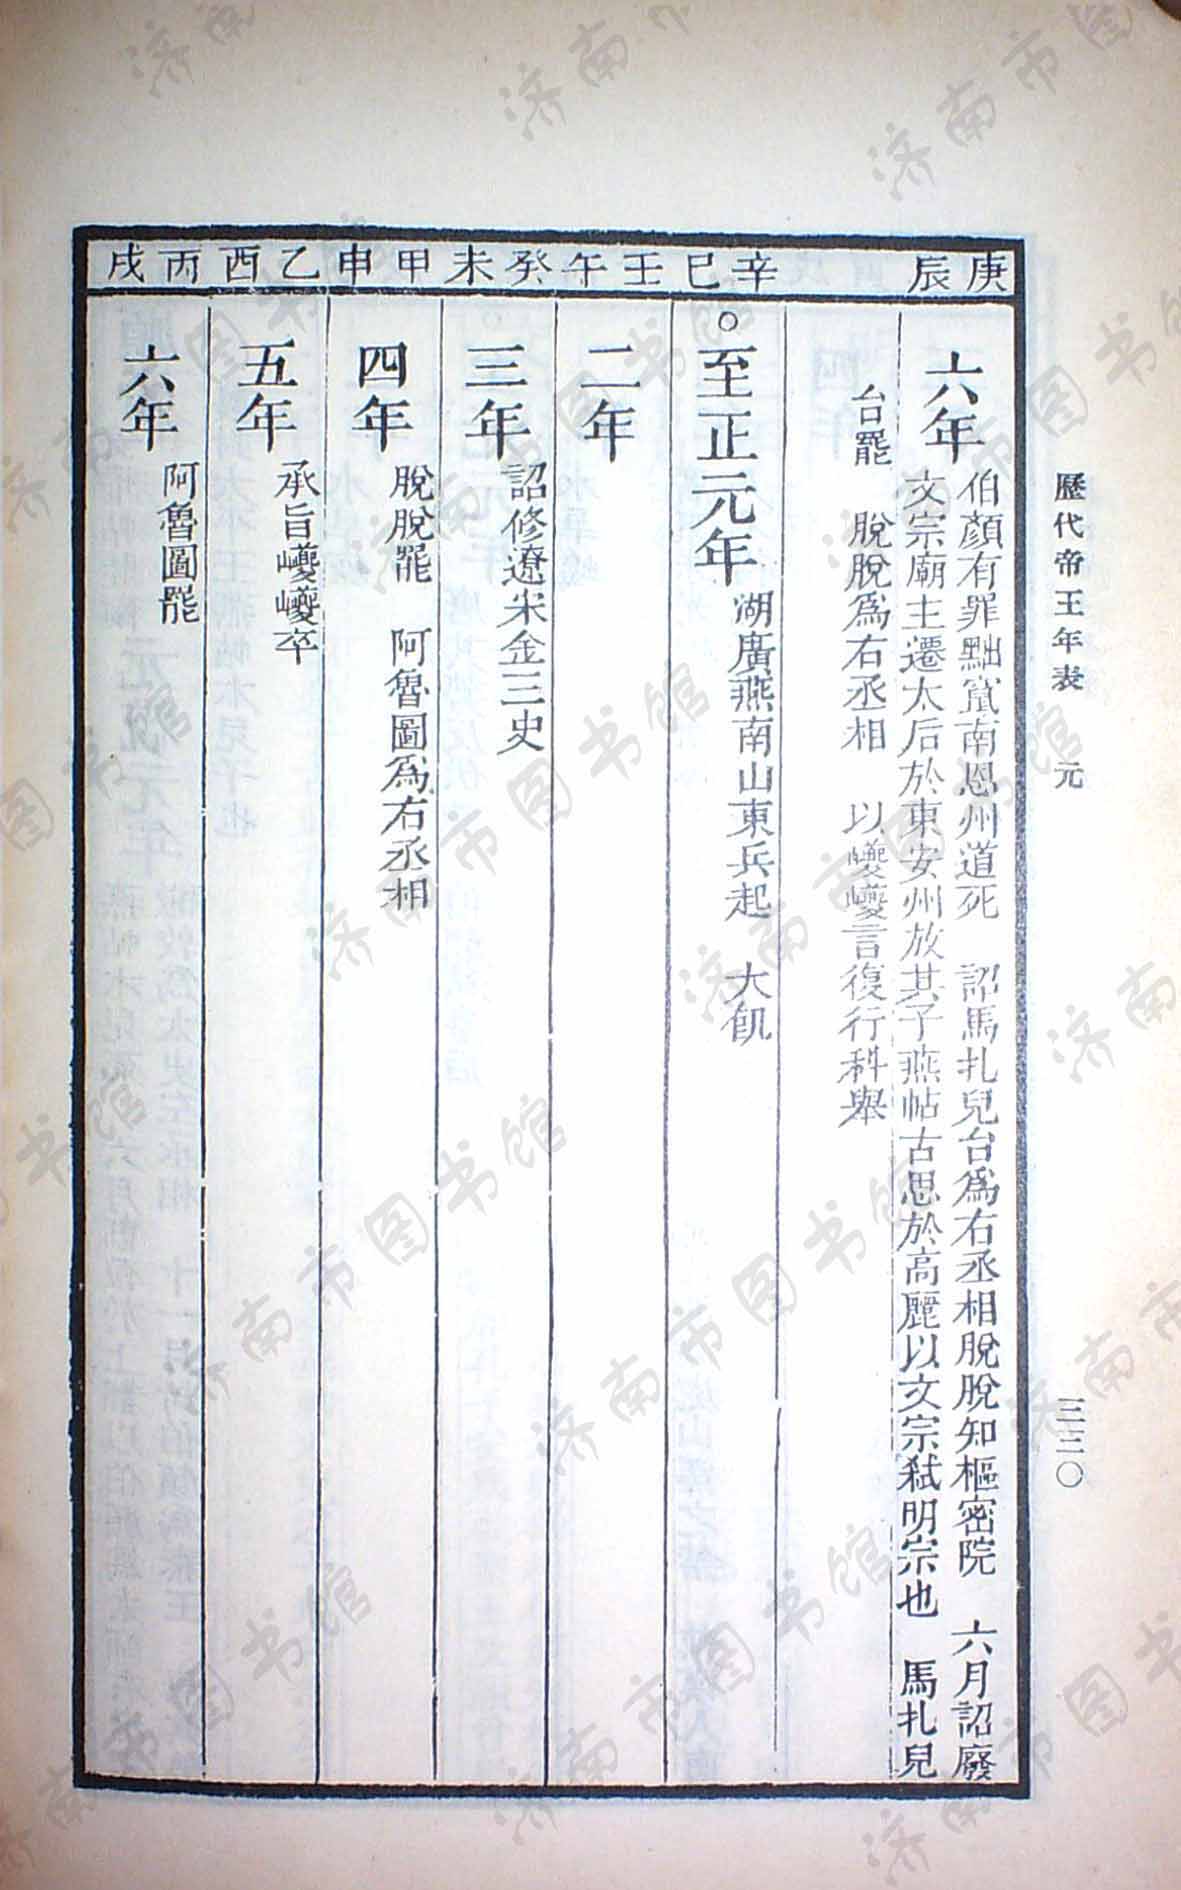 歷代帝王年表 元 三三〇
庚辰 辛巳 壬午 癸未 甲申 乙酉 丙戌
六年
伯顏有罪黜竄南恩州道死 詔馬扎兒台爲右丞相脫脫知樞密院 六月詔廢
文宗廟主遷太后於東安州放其子燕帖古思於高麗以文宗弒明宗也 馬扎兒
台罷 脫脫爲右丞相 以巙巙言復行科舉
○至正元年 湖廣燕南山東兵起 大飢
二年
三年 詔修遼宋金三史
四年 脫脫罷 阿魯圖爲右丞相
五年 承旨巙巙卒
六年 阿魯圖罷
济南市图书馆